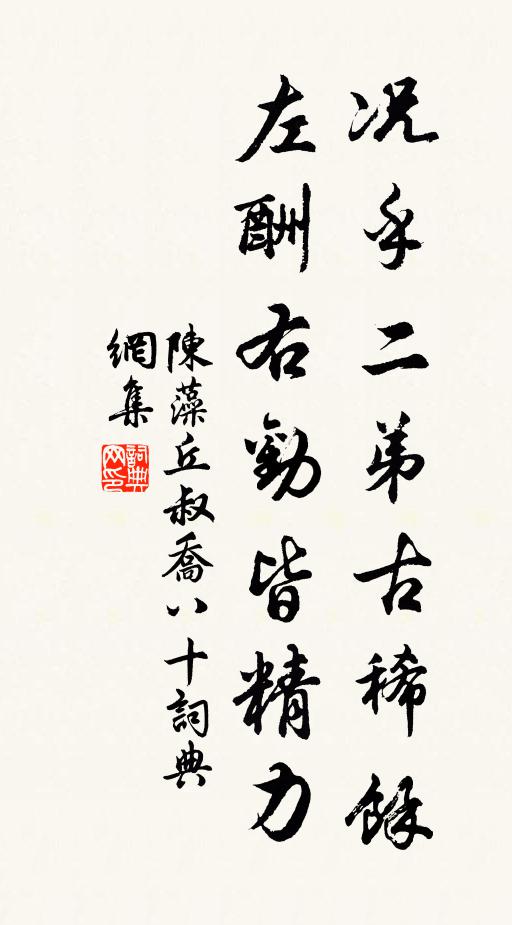 况乎二弟古稀餘
左酬右勸皆精力
陳藻丘叔喬八十詞典
網集
詞典網印